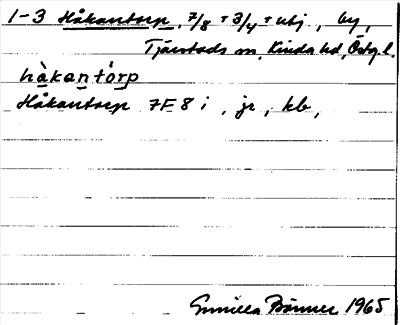 1-3 Håkantorp, 7/8 + 3/4 + utj, by,
Tjärstads sn, Kinda hd, Östg l.
håkantórp
Håkantorp 7F 8 i, jr, kb,
Gunilla Bönner 1965